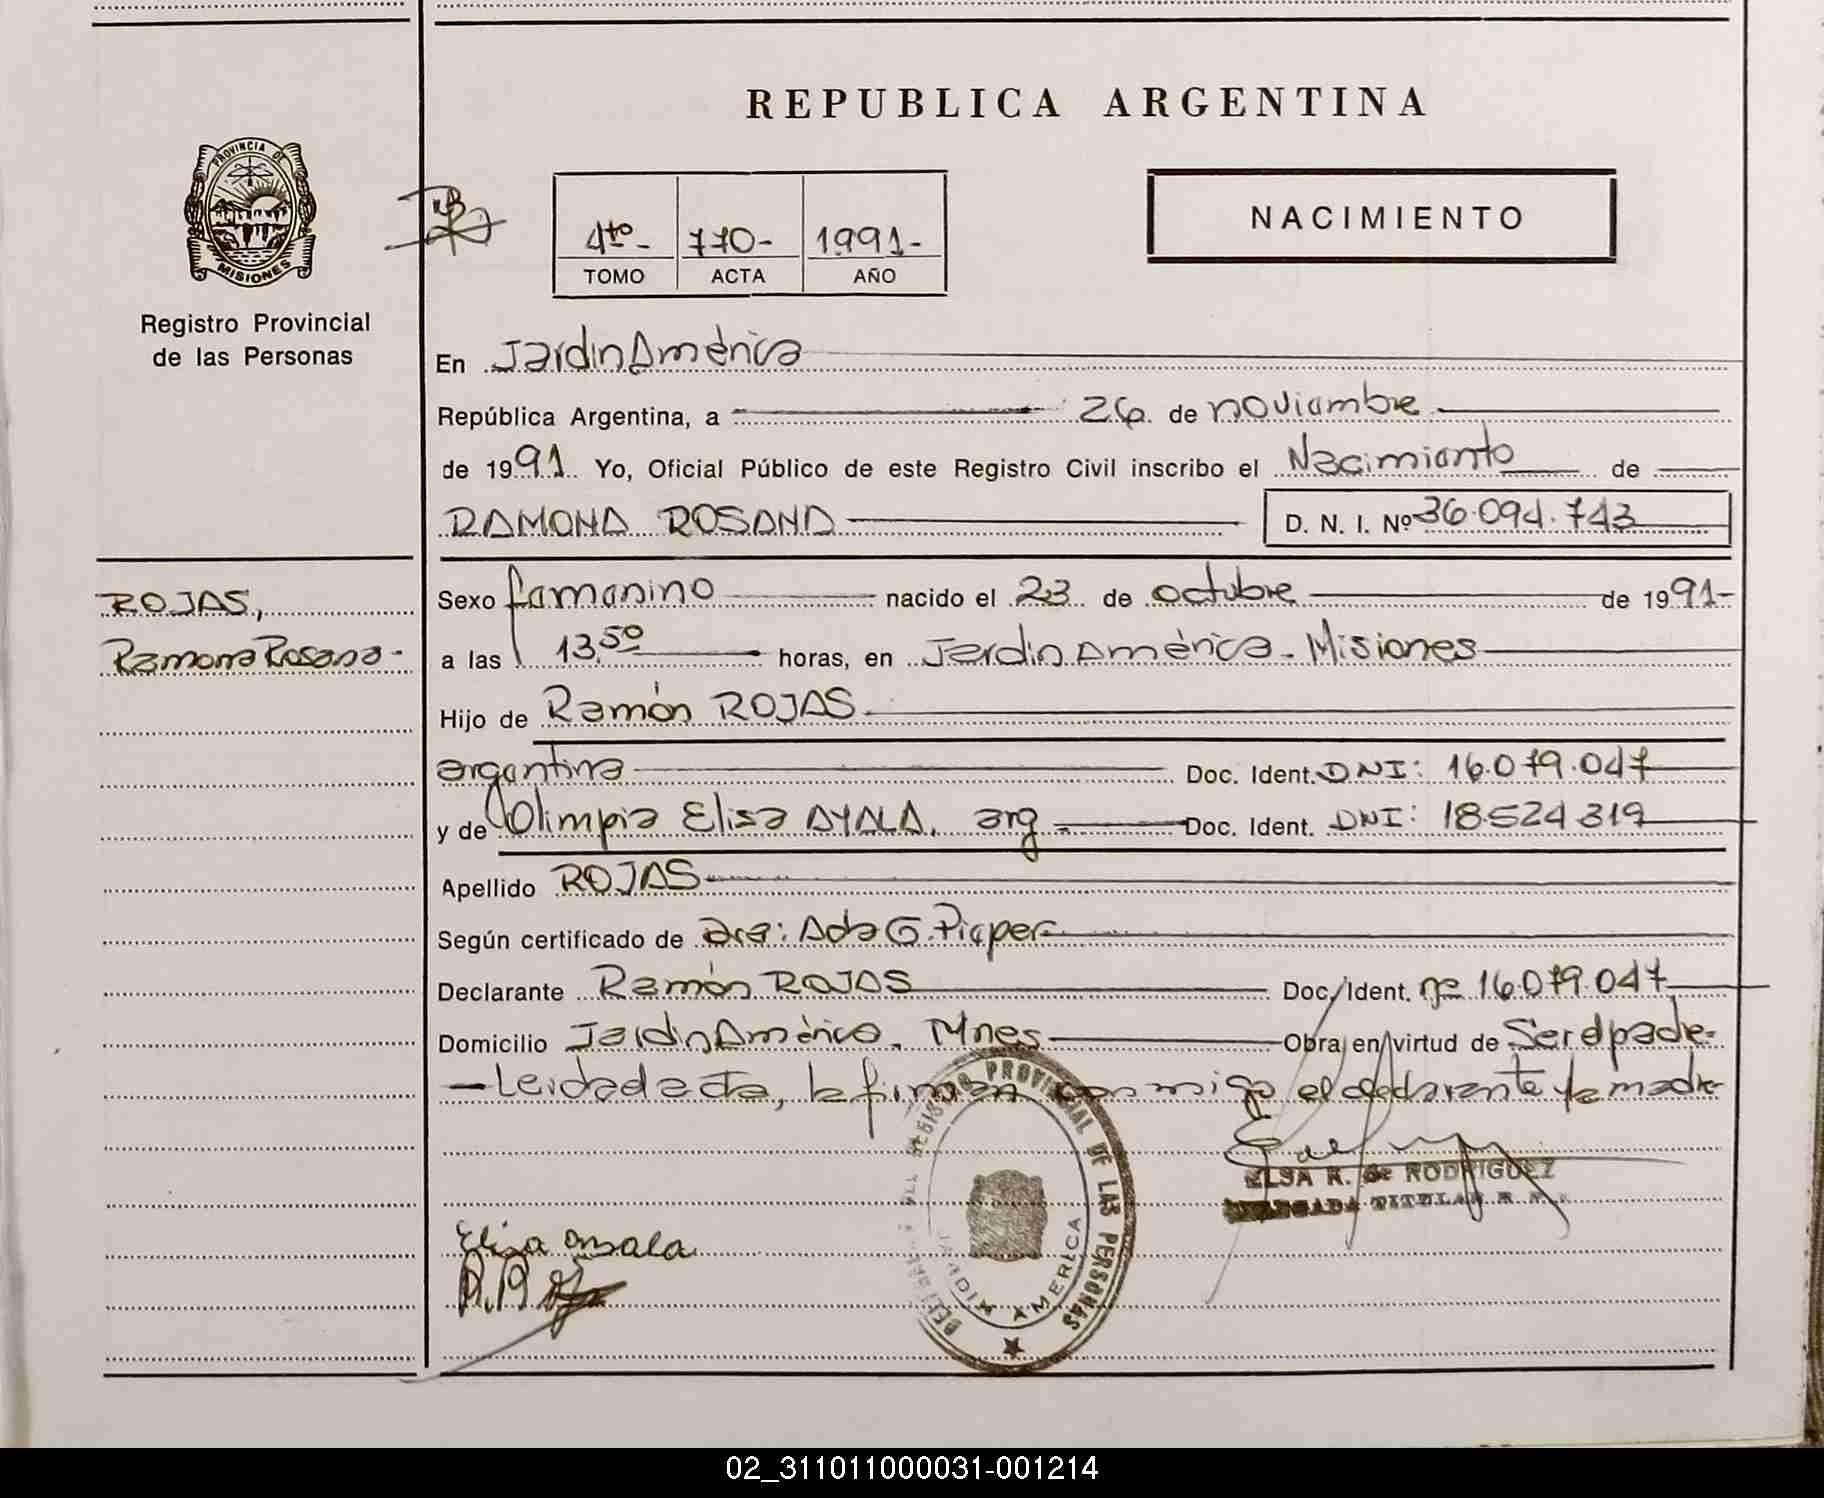 REPUBLICA ARGENTINA
PROVINCIA DE
MISIONES
Registro Provincial
de las Personas
4to- 770- 1991-
TOMO ACTA AÑO
NACIMIENTO
En Jardin América
República Argentina, a 26 de noviembre
de 1991. Yo, Oficial Público de este Registro Civil inscribo el Nacimiento de
RAMONA ROSANA D. N. I. Nº 36.094.743
ROJAS,
Ramona Rosana-
Sexo femenino nacido el 23 de octubre de 1991-
a las 13,50 horas, en Jardin América - Misiones
Hijo de Ramón ROJAS
argentina Doc. Ident. DNI: 16.079.047
y de Olimpia Elisa AYALA, arg. Doc. Ident. DNI: 18.524.319
Apellido ROJAS
Según certificado de Dra: Ada G. Pieper
Declarante Ramón ROJAS Doc. Ident. nº 16.079.047
Domicilio Jardin América, Mnes Obra en virtud de Ser el padre-
- Leida el acta, la firman conmigo el declarante y la madre
REGISTRO PROVINCIAL DE LAS PERSONAS
JARDIN AMERICA
ELSA R. de RODRIGUEZ
DELEGADA TITULAR
Elisa Ayala
02_311011000031-001214